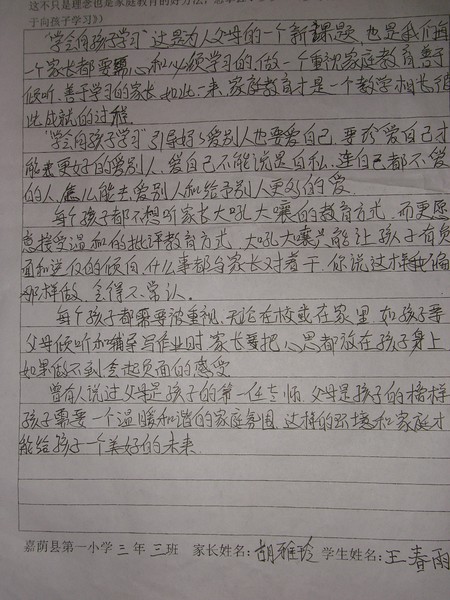 这不只是理念也是家庭教育的好方法,
于向孩子学习》)
"学会向孩子学习"这是为人父母的一个新课题,也是我们每
一个家长都要 心和必须学习的,做一个重视家庭教育,善于
倾听,善于学习的家长,如此一来,家庭教育才是一个教学相长彼
此成就的过程。
"学会向孩子学习"引导好 爱别人也要爱自己,要 爱自己才
能去更好的爱别人,爱自己不能说是自私,连自己都不爱
的人,怎么能去爱别人和给予别人更多的爱。
每个孩子都不想听家长大吼大嚷的教育方式,而更愿
意接受温和的批评教育方式,大吼大嚷只能让孩子有负
面和逆反的倾向,什么事都与家长对着干,你说这样我偏
那样做,会得不常认。
每个孩子都需要被重视,无论在校或在家里,如孩子要
父母倾听和辅导写作业时,家长要把心思都放在孩子身上
如果做不到会起负面的感受
曾有人说过父母是孩子的第一任老师,父母是孩子的榜样
孩子需要一个温暖和谐的家庭氛围,这样的环境和家庭才
能给孩子一个美好的未来
嘉荫县第一小学三年三班 家长姓名:胡雅玲 学生姓名:王春雨